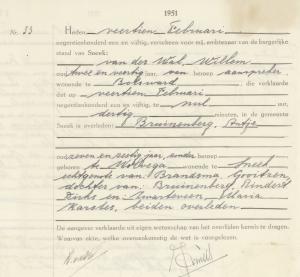 1951
Nr. 33 Heden veertien Februari
negentienhonderd een en vijftig, verscheen voor mij, ambtenaar van de burgerlijke
stand van Sneek:
van der Wal, Willem
twee en veertig jaar, van beroep aanspreker
wonende te Bolsward, die verklaarde
dat op veertien Februari
negentienhonderd een en vijftig, te nul uur,
dertig minuten, in de gemeente
Sneek is overleden: Bruinenberg, Baukje
zeven en zestig jaar, zonder beroep
geboren te Wolvega wonende te Sneek
echtgenote van: Brandsma, Goortzen,
dochter van: Bruinenberg, Rindert
Dirks en Maria
Karstes, beiden overleden.
De aangever verklaarde uit eigen wetenschap van het overlijden kennis te dragen.
Waarvan akte, welke overeenkomstig de wet is voorgelezen.